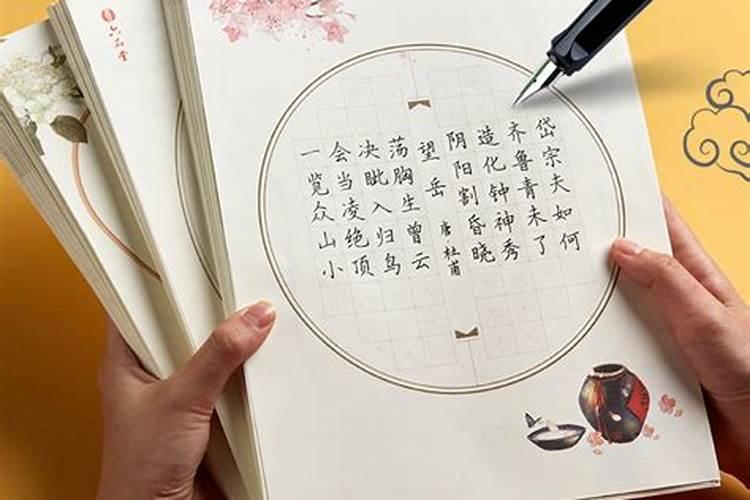 岱宗夫如何
齐鲁青未了
造化钟神秀
阴阳割昏晓
望岳 唐 杜甫
荡胸生曾云
决眦入归鸟
会当凌绝顶
一览众山小
六品堂